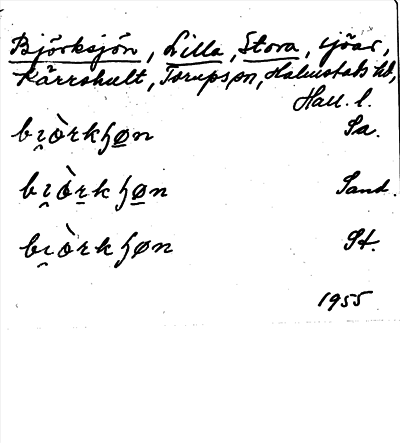 Björksjön, Lilla, Stora, sjöar,
Kärrshult, Torups sn, Halmstads hd,
Hall. l.
bi̯òrkɧøn Sa.
bi̯òrkɧøn Sand.
bi̯òrkɧøn St.
1955